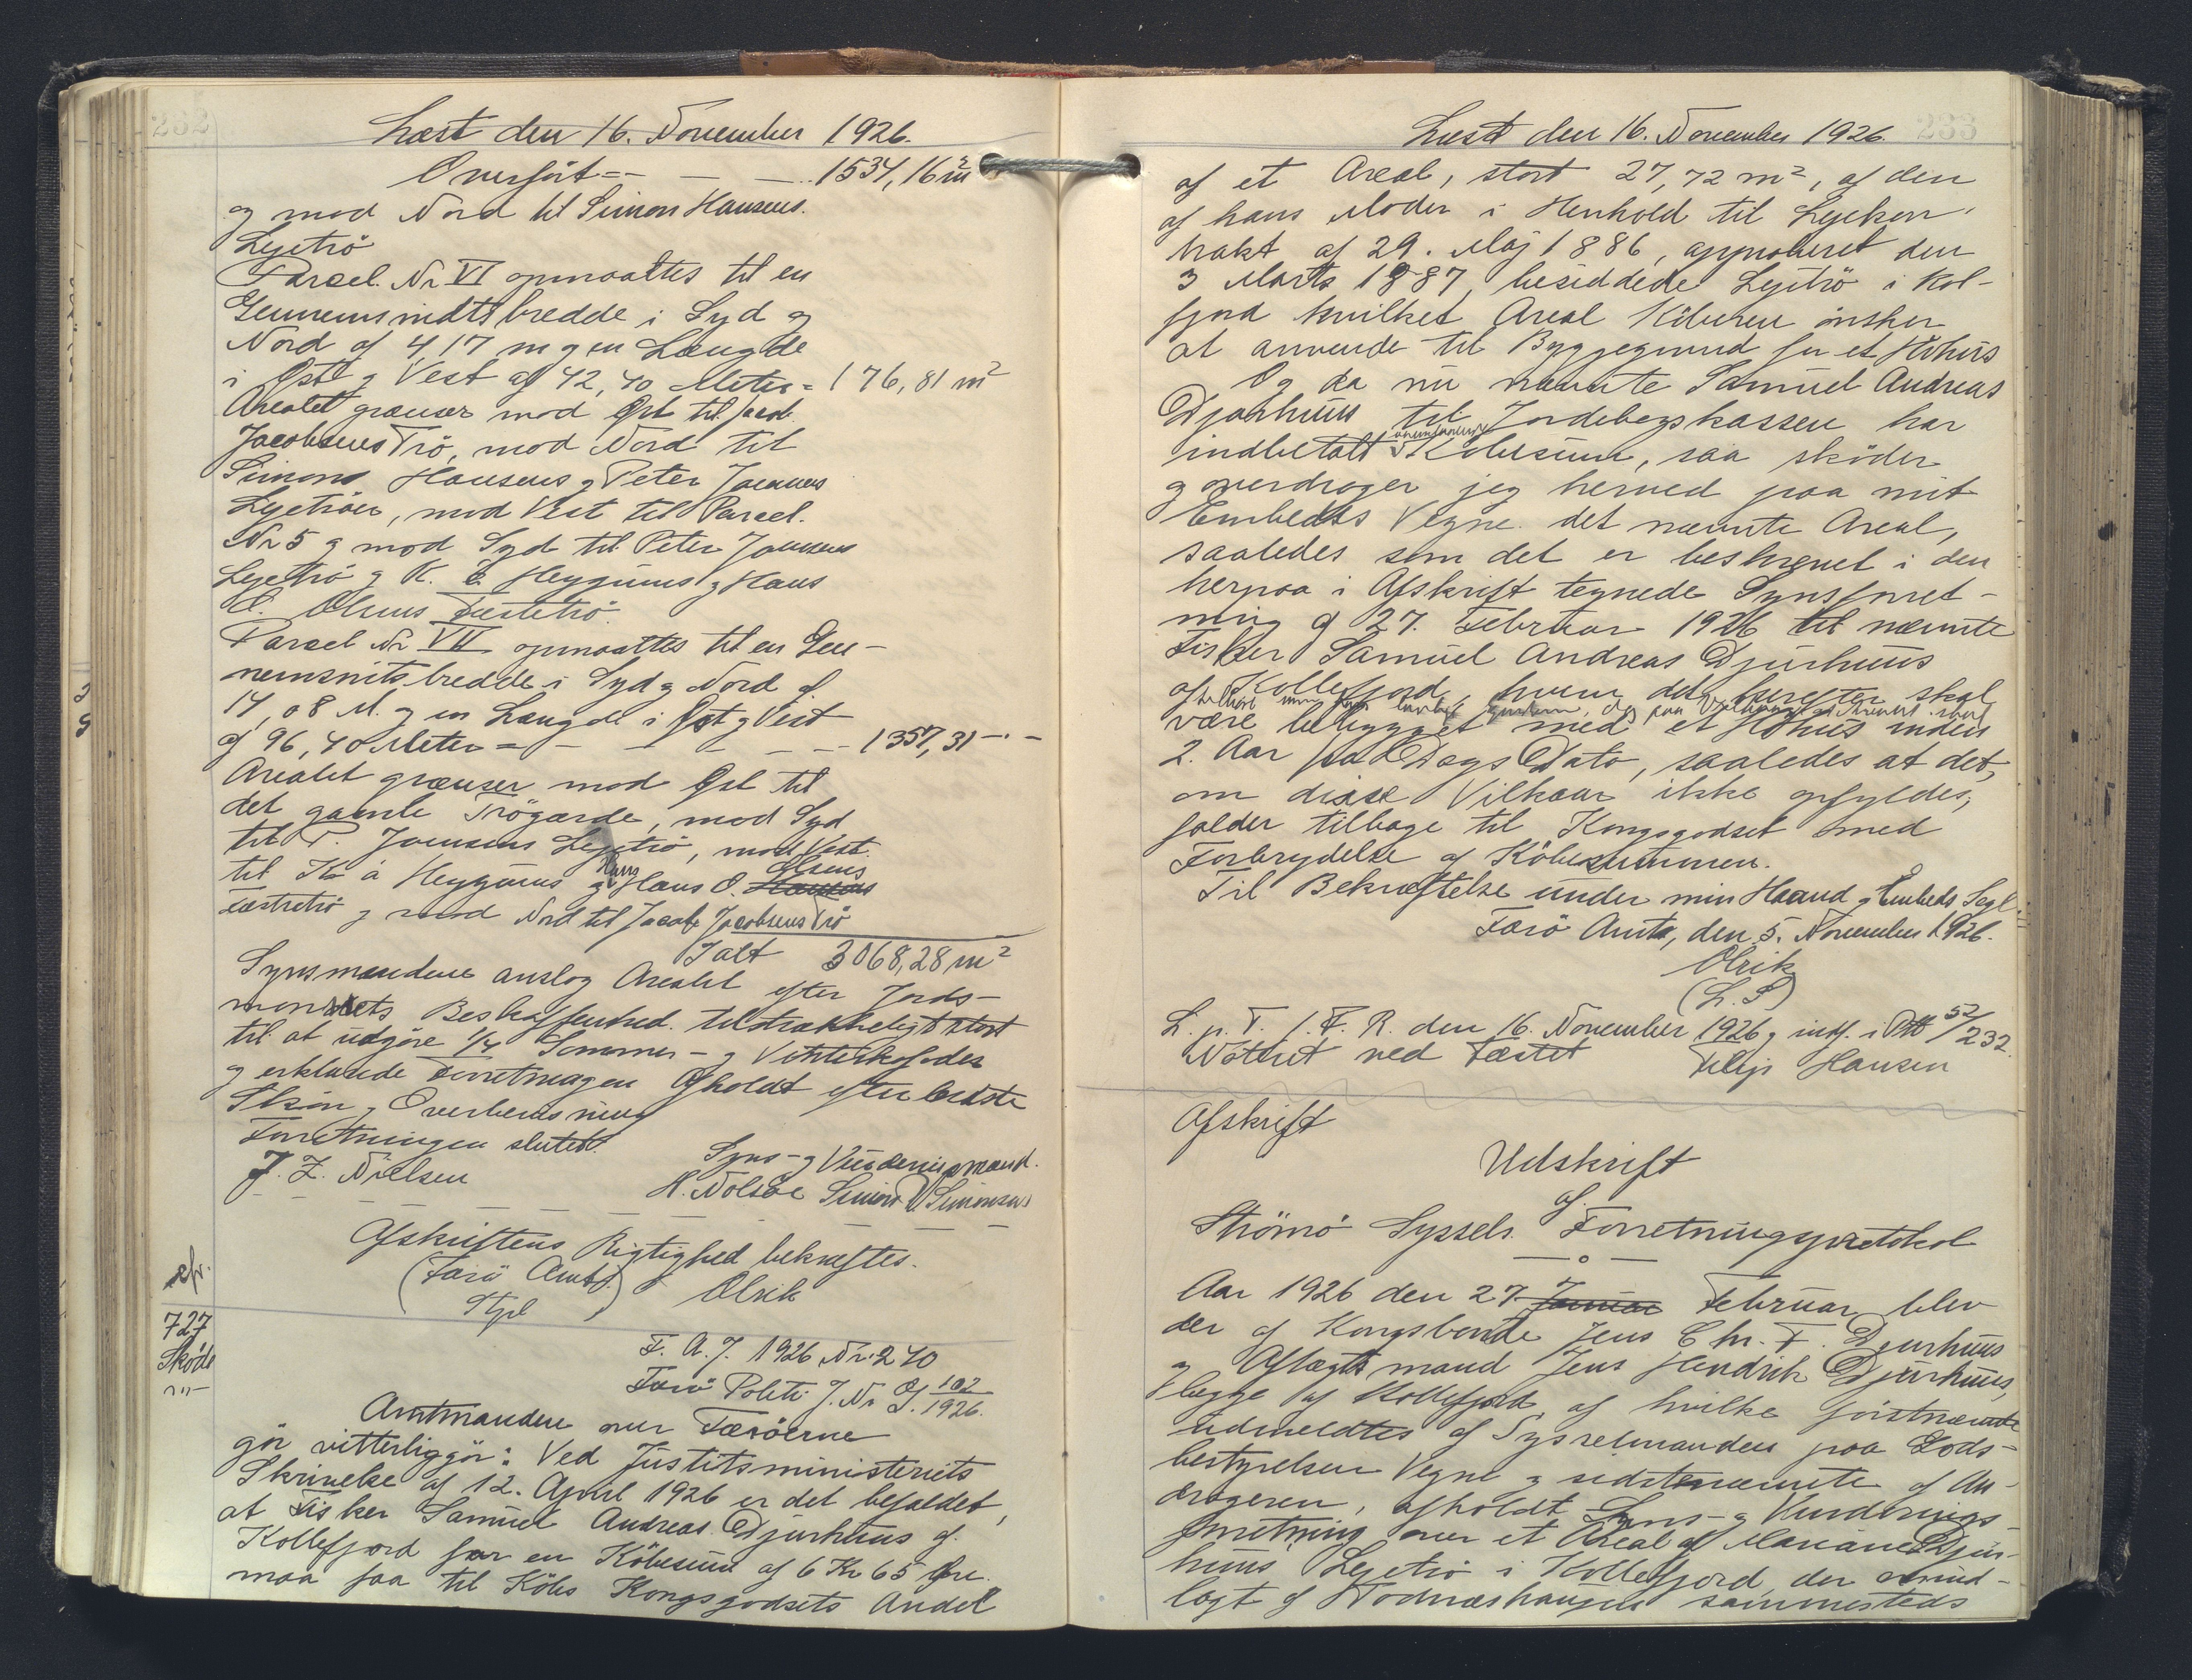 Læst den 16. November 1926.
Overført = - - - 1534,16 m²
og mod Nord til Simon Hansens
Lejetrö
Parcel Nr VI opmaaltes til en
Gennemsnidtsbredde i Syd og
Nord af 4 17 m og en Længde
i Øst og Vest af 42,40 Meter = 176,81 m²
Arealet grænser mod Øst til Jacob
Jacobsens Trö, mod Nord til
Simons Hansens og Peter Joensens
Lejetröer, mod Vest til Parcel.
Nr 5 og mod Syd til Peter Joensens
Lejetrö og K. Heygums og Hans
O. Olsens Fæstetrö.
Parcel Nr VII opmaaltes til en Gen-
nemsnitsbredde i Syd og Nord af
14,08 M. og en Længde i Øst og Vest
af 96,40 Meter = - - - - - 1357,31 - . -
Arealet grænser mod Øst til
det gamle Trögærde, mod Syd
til P. Joensens Lejetrö, mod Vest
til K. á Heygums og Hans O. Hansens Olsens
Fæstetrö og mod Nord til Jacob Jacobsens Trö
Ialt 3068,28 m²
Synsmændene anslog Arealet efter Jords-
monnets Beskaffenhed tilstrækkeligt stort
til at udgøre 1/4 Sommer- og Vinterkofoder
og erklærede Forretningen afholdt efter bedste
Skøn og Overbevisning
Forretningen sluttet.
Syns- og Vurderingsmænd.
J. Z. Nielsen H. Nolsöe Simon V Simonsen
Afskriftens Rigtighed bekræftes.
(Færö Amts) Olrik
Stpl
cfr.
727
Skøde
F. A. J. 1926 Nr. 240
Færö Politi J. Nr 102/1926.
Amtmanden over Færöerne
gör vitterliggör: Ved Justitsministeriets
Skrivelse af 12. April 1926 er det befalet,
at Fisker Samuel Andreas Djurhuus af
Kollefjord for en Købesum af 6 Kr 65 Øre
maa faa til Købs Kongsgodsets Andel
Læst den 16. November 1926.
af et Areal, stort 27,72 m², af den
af hans Moder i Henhold til Lejekon-
trakt af 29. Maj 1886, approberet den
3 Marts 1887, besiddede Lejetrö i Kol-
fjord hvilket Areal Köberen ønsker
at anvende til Byggegrund for et Hohus
Og da nu nævnte Samuel Andreas
Djurhuus til Jordebogskassen har
indbetalt Købesum, saa sköder
og overdrager jeg herved paa mit
Embeds Vegne det nævnte Areal,
saaledes som det er beskrevet i den
herpaa i Afskrift tegnede Synsforret-
ning af 27. Februar 1926 til nævnte
Fisker Samuel Andreas Djurhuus
af Kollefjord, hvem det herefter skal
tilhøre som lovlig Ejendom, dog paa Vilkaar at Arealet skal
være bebygget med et Hohus inden
2. Aar fra Dags Dato, saaledes at det,
om disse Vilkaar ikke opfyldes,
falder tilbage til Kongsgodset med
Forbrydelse af Købesummen.
Til Bekræftelse under min Haand og Embeds Segl.
Færö Amt, den 5. November 1926.
Olrik
(L. S)
L. p. T. f. F. R. den 16. November 1926 og indf. i Ptk 52/232.
Noteret ved Fæstet Filip Hansen
Afskrift
Udskrift
af
Strömö Syssels Forretningsprotokol
— o —
Aar 1926 den 27. Januar Februar blev
der af Kongsbonde Jens Chr. F. Djurhuus
og Aftægtsmand Jens Hendrik Djurhuus,
begge af Kollefjord, af hvilke förstnævnte
udmeldtes af Sysselmanden paa Gods-
bestyrelsens Vegne og sidstnævnte af An-
drageren, afholdt Syns- og Vurderings-
forretning over et Areal af Mariane Djur-
huus Lejetrö i Kollefjord, der
lagt af sammesteds